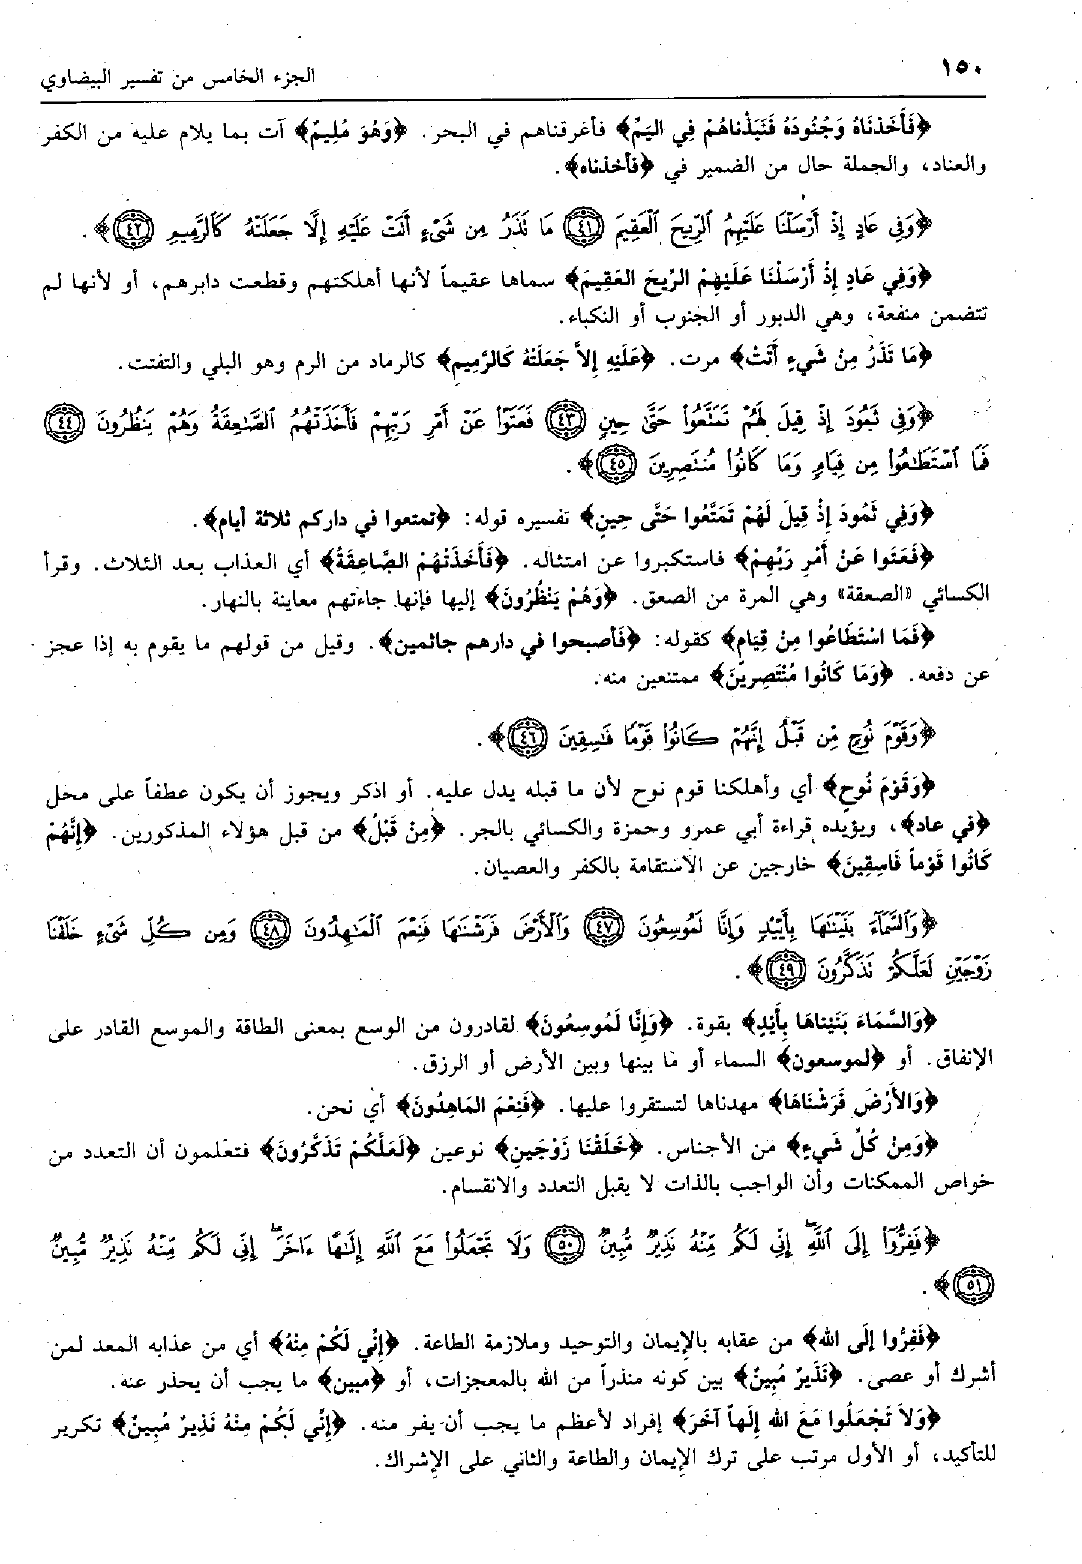 ١٥٠
الجزء الخامس من تفسير البيضاوي
﴿فَأَخَذْنَاهُ وَجُنُودَهُ فَنَبَذْنَاهُمْ فِي اليَمِّ﴾ فأغرقناهم في البحر. ﴿وَهُوَ مُلِيمٌ﴾ آت بما يلام عليه من الكفر
والعناد، والجملة حال من الضمير في ﴿فأخذناه﴾.
﴿وَفِى عَادٍ إِذْ أَرْسَلْنَا عَلَيْهِمُ ٱلرِّيحَ ٱلْعَقِيمَ ﴿٤١﴾ مَا نَذَرُ مِن شَىْءٍ أَتَتْ عَلَيْهِ إِلَّا جَعَلَتْهُ كَٱلرَّمِيمِ ﴿٤٢﴾﴾.
﴿وَفِي عَادٍ إِذْ أَرْسَلْنَا عَلَيْهِمْ الرِّيحَ العَقِيمَ﴾ سماها عقيماً لأنها أهلكتهم وقطعت دابرهم، أو لأنها لم
تتضمن منفعة، وهي الدبور أو الجنوب أو النكباء.
﴿مَا تَذَرُ مِنْ شَيءٍ أَتَتْ﴾ مرت. ﴿عَلَيْهِ إِلاَّ جَعَلَتْهُ كَالرَّمِيمِ﴾ كالرماد من الرم وهو البلي والتفتت.
﴿وَفِى ثَمُودَ إِذْ قِيلَ لَهُمْ تَمَتَّعُوا۟ حَتَّىٰ حِينٍ ﴿٤٣﴾ فَعَتَوْا۟ عَنْ أَمْرِ رَبِّهِمْ فَأَخَذَتْهُمُ ٱلصَّـٰعِقَةُ وَهُمْ يَنظُرُونَ ﴿٤٤﴾
فَمَا ٱسْتَطَـٰعُوا۟ مِن قِيَامٍ وَمَا كَانُوا۟ مُنتَصِرِينَ ﴿٤٥﴾﴾.
﴿وَفِي ثَمُودَ إِذْ قِيلَ لَهُمْ تَمَتَّعُوا حَتَّى حِينٍ﴾ تفسيره قوله: ﴿تمتعوا في داركم ثلاثة أيام﴾.
﴿فَعَتَوا عَنْ أَمْرِ رَبِّهِمْ﴾ فاستكبروا عن امتثاله. ﴿فَأَخَذَتْهُمْ الصَّاعِقَةُ﴾ أي العذاب بعد الثلاث. وقرأ
الكسائي «الصعقة» وهي المرة من الصعق. ﴿وَهُمْ يَنْظُرُونَ﴾ إليها فإنها جاءتهم معاينة بالنهار.
﴿فَمَا اسْتَطَاعُوا مِنْ قِيَامٍ﴾ كقوله: ﴿فأصبحوا في دارهم جاثمين﴾. وقيل من قولهم ما يقوم به إذا عجز
عن دفعه. ﴿وَمَا كَانُوا مُنْتَصِرِيْنَ﴾ ممتنعين منه.
﴿وَقَوْمَ نُوحٍ مِّن قَبْلُ إِنَّهُمْ كَانُوا۟ قَوْمًا فَـٰسِقِينَ ﴿٤٦﴾﴾.
﴿وَقَوْمَ نُوحٍ﴾ أي وأهلكنا قوم نوح لأن ما قبله يدل عليه. أو اذكر ويجوز أن يكون عطفاً على محل
﴿في عاد﴾، ويؤيده قراءة أبي عمرو وحمزة والكسائي بالجر. ﴿مِنْ قَبْلُ﴾ من قبل هؤلاء المذكورين. ﴿إِنَّهُمْ
كَانُوا قَوْماً فَاسِقِينَ﴾ خارجين عن الاستقامة بالكفر والعصيان.
﴿وَٱلسَّمَآءَ بَنَيْنَـٰهَا بِأَيْيدٍ وَإِنَّا لَمُوسِعُونَ ﴿٤٧﴾ وَٱلْأَرْضَ فَرَشْنَـٰهَا فَنِعْمَ ٱلْمَـٰهِدُونَ ﴿٤٨﴾ وَمِن كُلِّ شَىْءٍ خَلَقْنَا
زَوْجَيْنِ لَعَلَّكُمْ تَذَكَّرُونَ ﴿٤٩﴾﴾.
﴿وَالسَّمَاءَ بَنَيْنَاهَا بِأَيْدٍ﴾ بقوة. ﴿وَإِنَّا لَمُوسِعُونَ﴾ لقادرون من الوسع بمعنى الطاقة والموسع القادر على
الإنفاق. أو ﴿لموسعون﴾ السماء أو ما بينها وبين الأرض أو الرزق.
﴿وَالأَرْضَ فَرَشْنَاهَا﴾ مهدناها لتستقروا عليها. ﴿فَنِعْمَ المَاهِدُونَ﴾ أي نحن.
﴿وَمِنْ كُلِّ شَيءٍ﴾ من الأجناس. ﴿خَلَقْنَا زَوْجَيْنِ﴾ نوعين ﴿لَعَلَّكُمْ تَذَكَّرُونَ﴾ فتعلمون أن التعدد من
خواص الممكنات وأن الواجب بالذات لا يقبل التعدد والانقسام.
﴿فَفِرُّوٓا۟ إِلَى ٱللَّهِ ۖ إِنِّى لَكُم مِّنْهُ نَذِيرٌ مُّبِينٌ ﴿٥٠﴾ وَلَا تَجْعَلُوا۟ مَعَ ٱللَّهِ إِلَـٰهًا ءَاخَرَ ۖ إِنِّى لَكُم مِّنْهُ نَذِيرٌ مُّبِينٌ
﴿٥١﴾﴾.
﴿فَفِرُّوا إِلَى الله﴾ من عقابه بالإيمان والتوحيد وملازمة الطاعة. ﴿إِنِّي لَكُمْ مِنْهُ﴾ أي من عذابه المعد لمن
أشرك أو عصى. ﴿نَذِيرٌ مُبِينٌ﴾ بين كونه منذراً من الله بالمعجزات، أو ﴿مبين﴾ ما يجب أن يحذر عنه.
﴿وَلاَ تَجْعَلُوا مَعَ الله إِلَهاً آخَرَ﴾ إفراد لأعظم ما يجب أن يفر منه. ﴿إِنِّي لَكُمْ مِنْهُ نَذِيرٌ مُبِينٌ﴾ تكرير
للتأكيد، أو الأول مرتب على ترك الإيمان والطاعة والثاني على الإشراك.